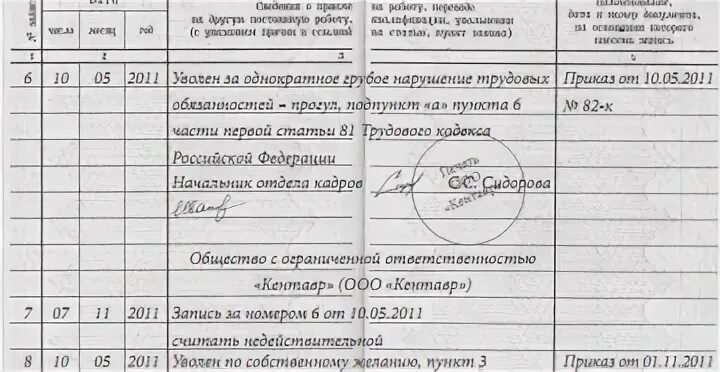 Сведения о приеме на работу, переводе
на другую постоянную работу, квалификации, увольнении
(с указанием причин и ссылкой на статью, пункт закона)
Наименование,
дата и номер документа,
на основании которого
число месяц год
1 2 3 4
6 10 05 2011 Уволен за однократное грубое нарушение трудовых Приказ от 10.05.2011
обязанностей – прогул, подпункт «а» пункта 6 № 82-к
части первой статьи 81 Трудового кодекса
Российской Федерации
Начальник отдела кадров С.С. Сидорова
Печать
ООО
«Кентавр»
Общество с ограниченной ответственностью
«Кентавр» (ООО «Кентавр»)
7 07 11 2011 Запись за номером 6 от 10.05.2011
считать недействительной
8 10 05 2011 Уволен по собственному желанию, пункт 3 Приказ от 01.11.2011